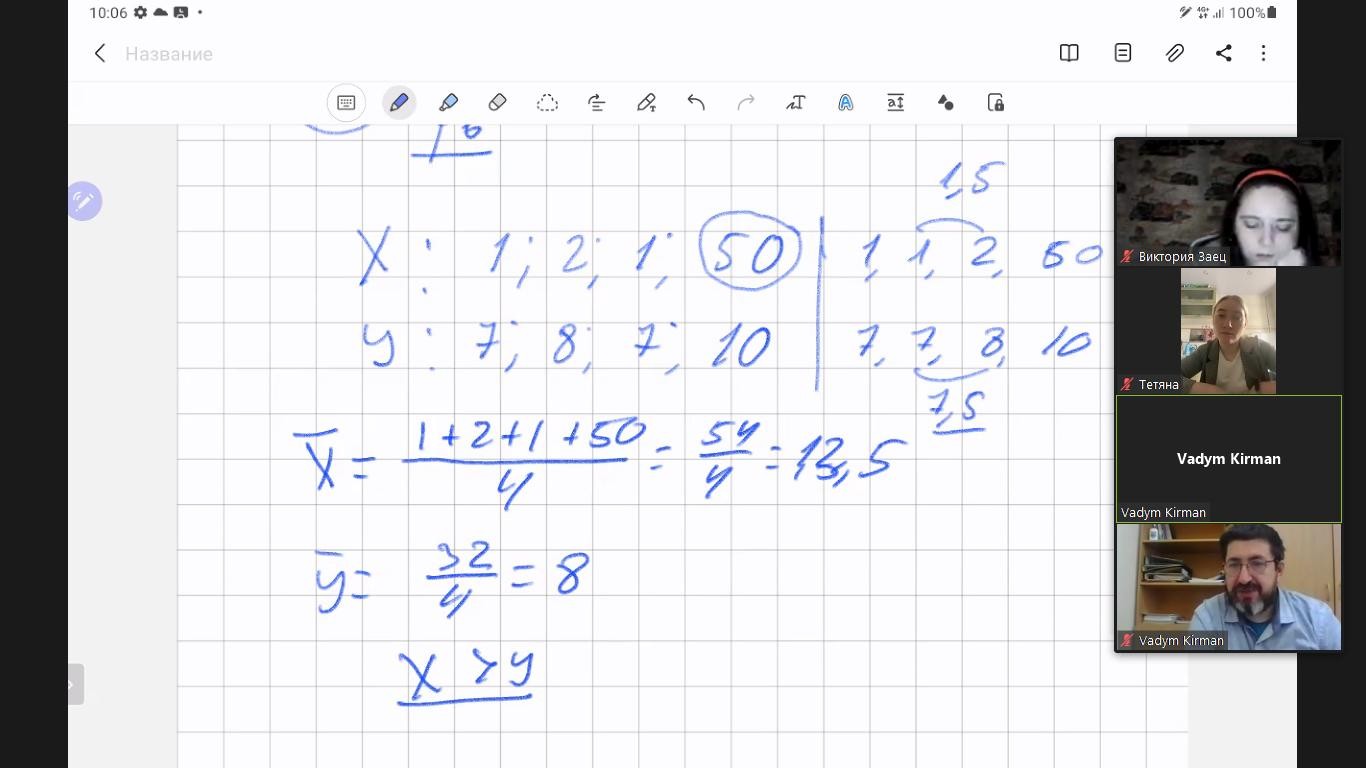 10:06 4G+ 100%
Название
6
1,5
X : 1; 2; 1; 50 | 1, 1, 2, 50
y : 7; 8; 7; 10 | 7, 7, 8, 10
7,5
X̅ = (1+2+1+50)/4 = 54/4 = 13,5
y̅ = 32/4 = 8
X > y
Виктория Заец
Тетяна
Vadym Kirman
Vadym Kirman
Vadym Kirman